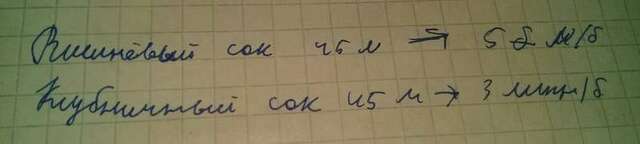 Вишнёвый сок 45 м → 5 м/б
Клубничный сок 45 м → 3 мин/б